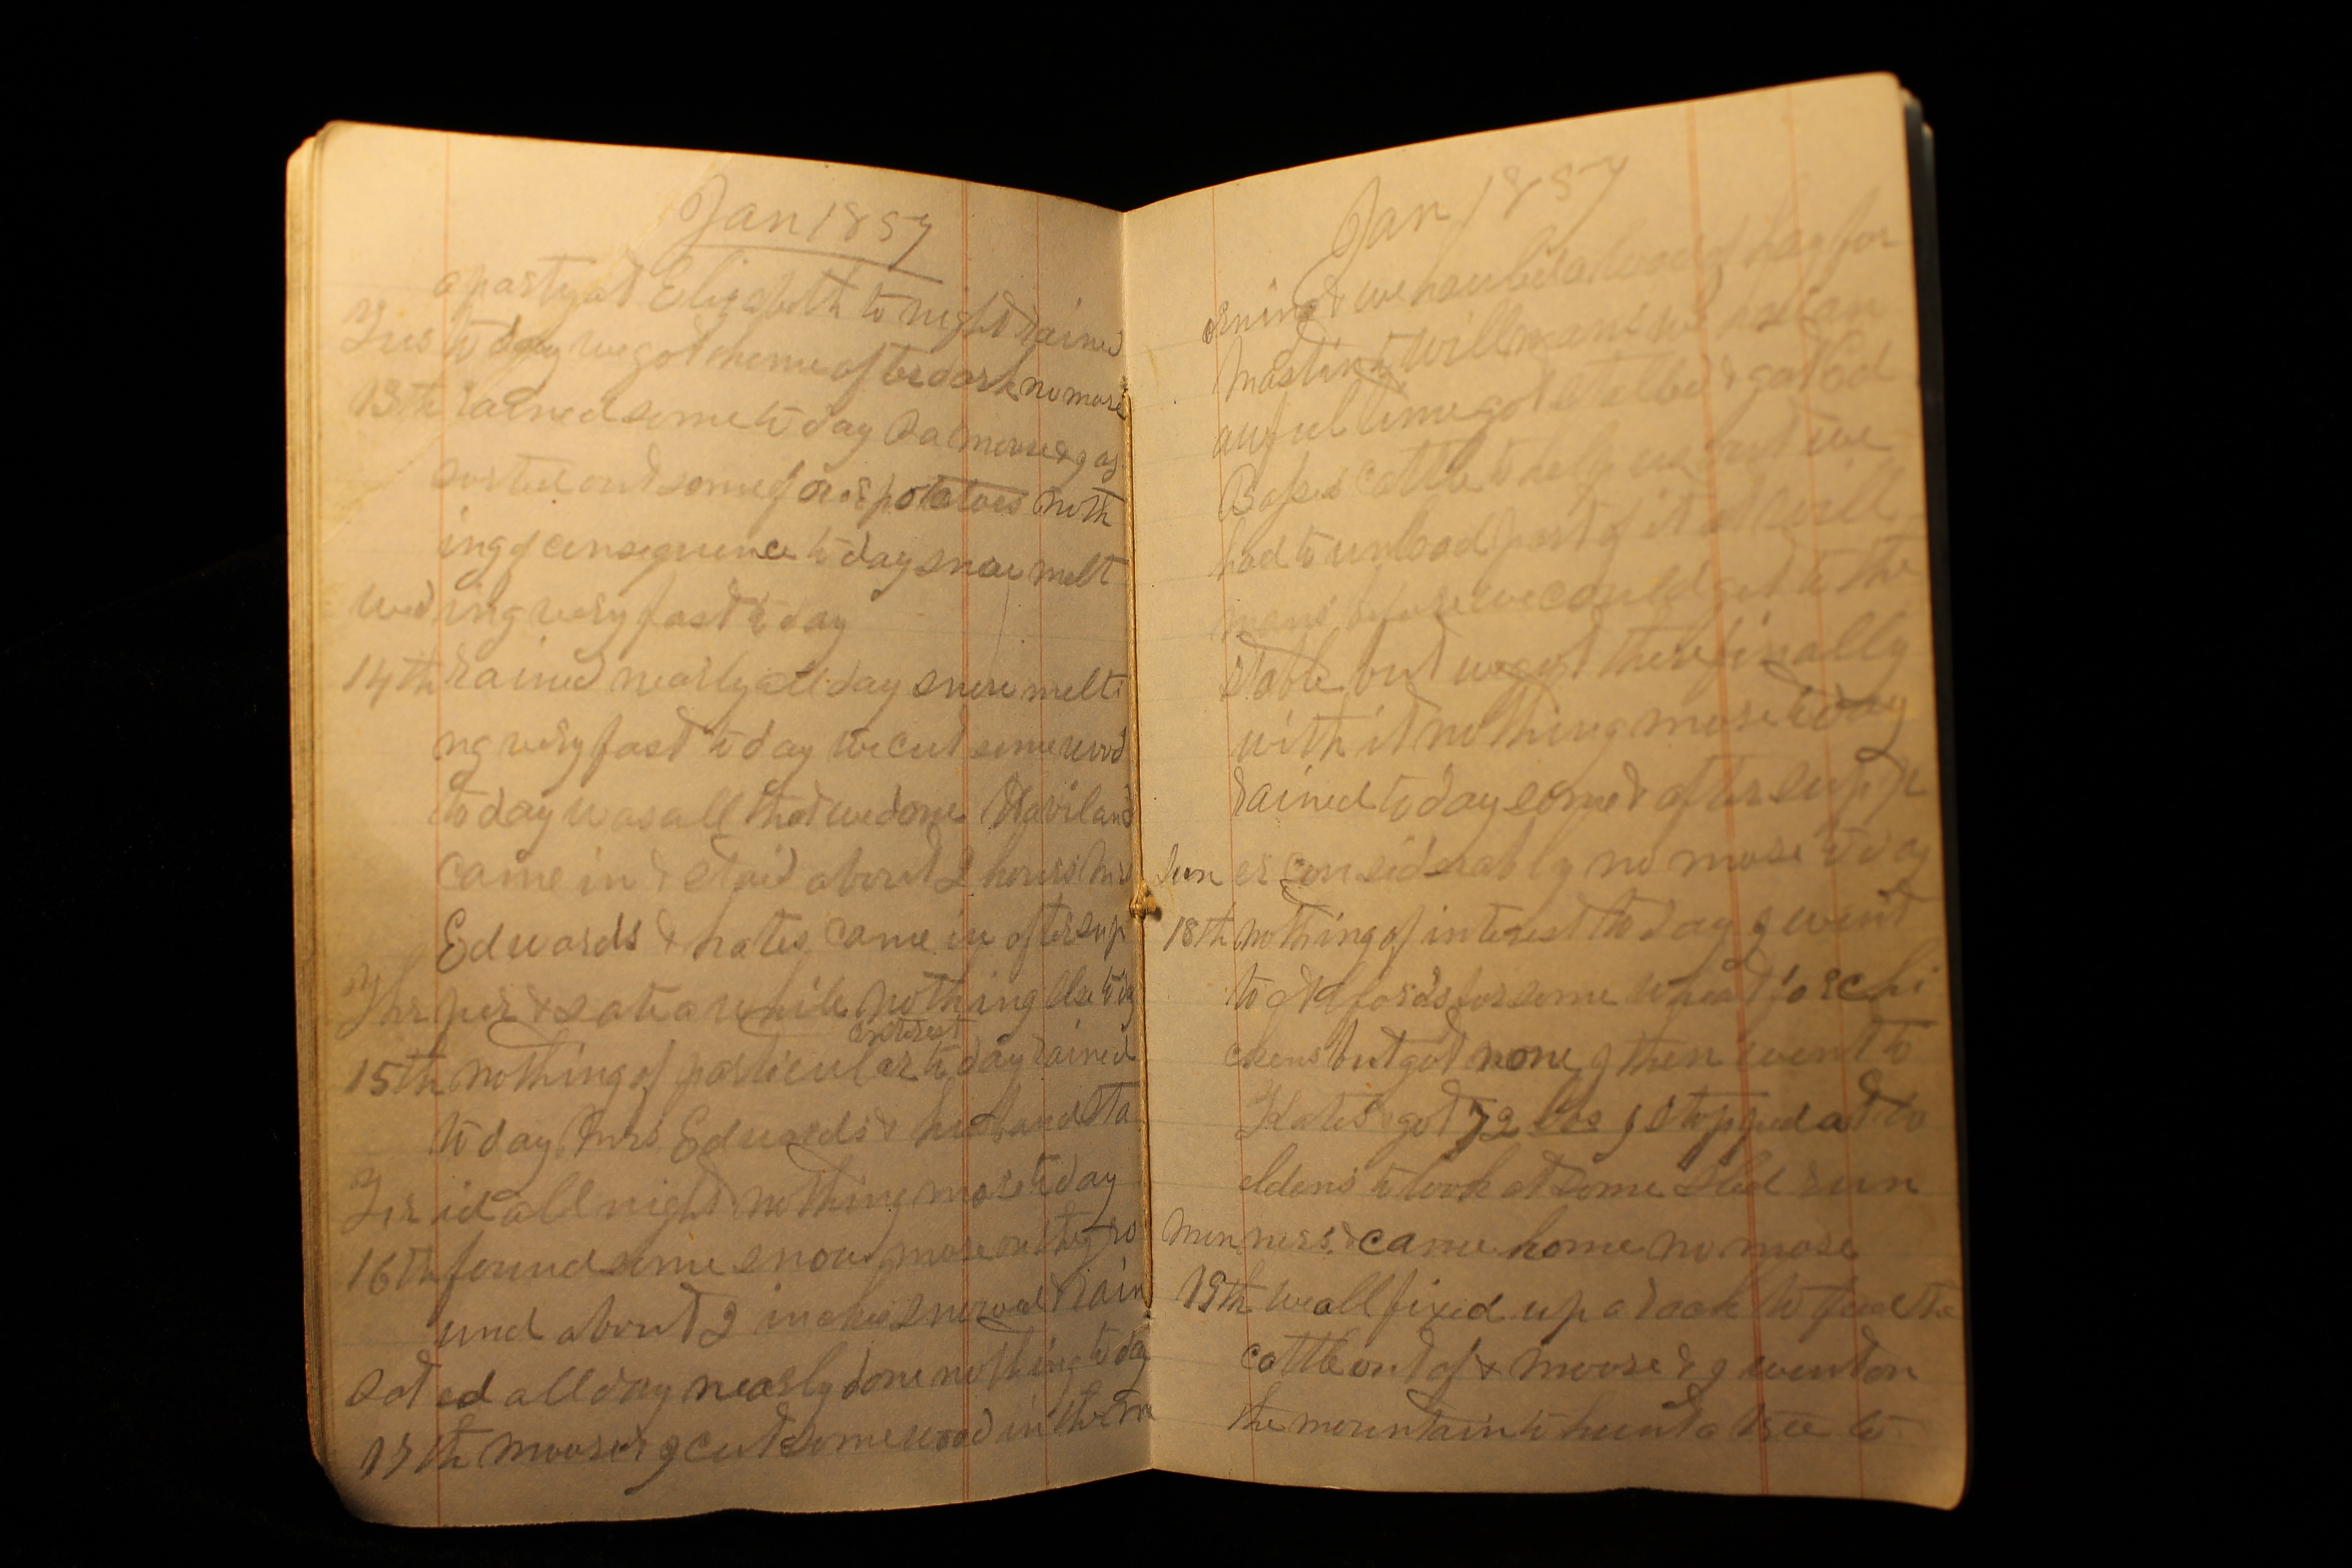 Jan 1857
a party at Elizabeth to night rained
Tues to day we got home after dark no more
13th rained some to day Sa moore & I as
sorted out some of our potatoes noth
ing of consequence to day snow melt
Wed ing very fast to day
14th rained nearly all day snow melti
ng very fast to day we cut some wood
to day was all that we done Haviland
came in & staid about 2 hours Mrs
Edwards & Kates came in after sup
Thr per & sat a while nothing else to day
interest
15th nothing of particular to day rained
to day Mrs Edwards & husband sta
Fri id all night nothing more to day
16th found some snow more on the gro
und about 2 inches snowed & rain
Sat ed all day nearly done nothing to day
17th moore & I cut some wood in the mo
Jan 1857
orning & we hauled a load of hay for
Mastin to Willmans we had an
awful time got stalled & got Ed
cattle to help us but we
had to unload part of it at Will
mans before we could get to the
stable but we got there finally
with it nothing more to day
rained to day some & after supp
Sun er considerably no more to day
18th nothing of interest to day I went
to for some wheat for chi
ckens but got none I then went to
Kates & got 72 lbs I stopped at
eldens to look at some sled run
Mon ners & came home no more
19th we all fixed up a rack to feed the
cattle out of & moore & I went on
the mountain to hunt a tree to